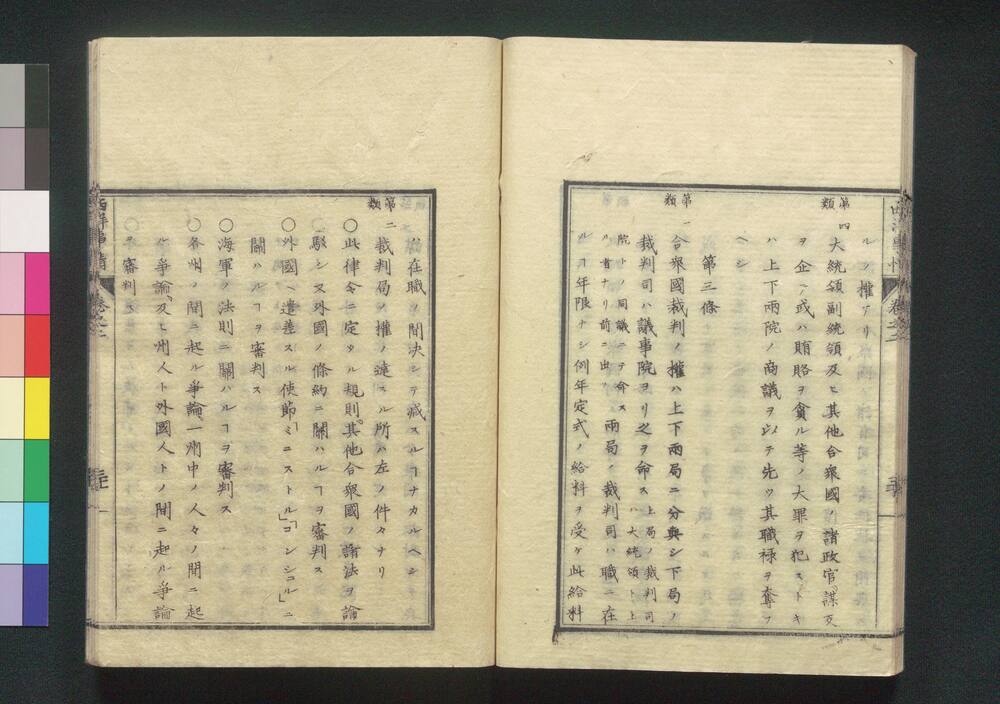 ルノ權アリ
第四類
大統領副統領及ヒ其他合衆國ノ諸政官謀反
ヲ企ヘ或ハ賄賂ヲ貪ル等ノ大罪ヲ犯ストキ
ハ上下兩院ノ商議ヲ以テ先ツ其職禄ヲ奪フ
ヘシ
第三條
第一類
合衆國裁判ノ權ハ上下兩局ニ分與シ下局ノ
裁判司ハ議事院ヨリ之ヲ命ス
上局ノ裁判司ハ大統領ト上
院トノ同議ニテ命ス
ル者ナリ前ニ出ツ
兩局ノ裁判司ハ職ニ在
ルヿ年限ナシ例年定式ノ給料ヲ受ケ此給料
西洋事情
卷之二
ハ在職ノ間決シテ減スルヿナカルヘシ
第二類
裁判局ノ權ノ達スル所ハ左ノ件々ナリ
○此律令ニ定タル規則其他合衆國ノ諸法ヲ論
駁シ又外國ノ條約ニ關ハルヿヲ審判ス
○外國ヘ遣差スル使節「ミニストル」「コンシユル」ニ
關ハルヿヲ審判ス
○海軍ノ法則ニ關ハルヿヲ審判ス
○各州ノ間ニ起ル爭論一州中ノ人々ノ間ニ起
ル爭論及ヒ州人ト外國人トノ間ニ起ル爭論
ヲ審判ス
西洋事情
卷之二